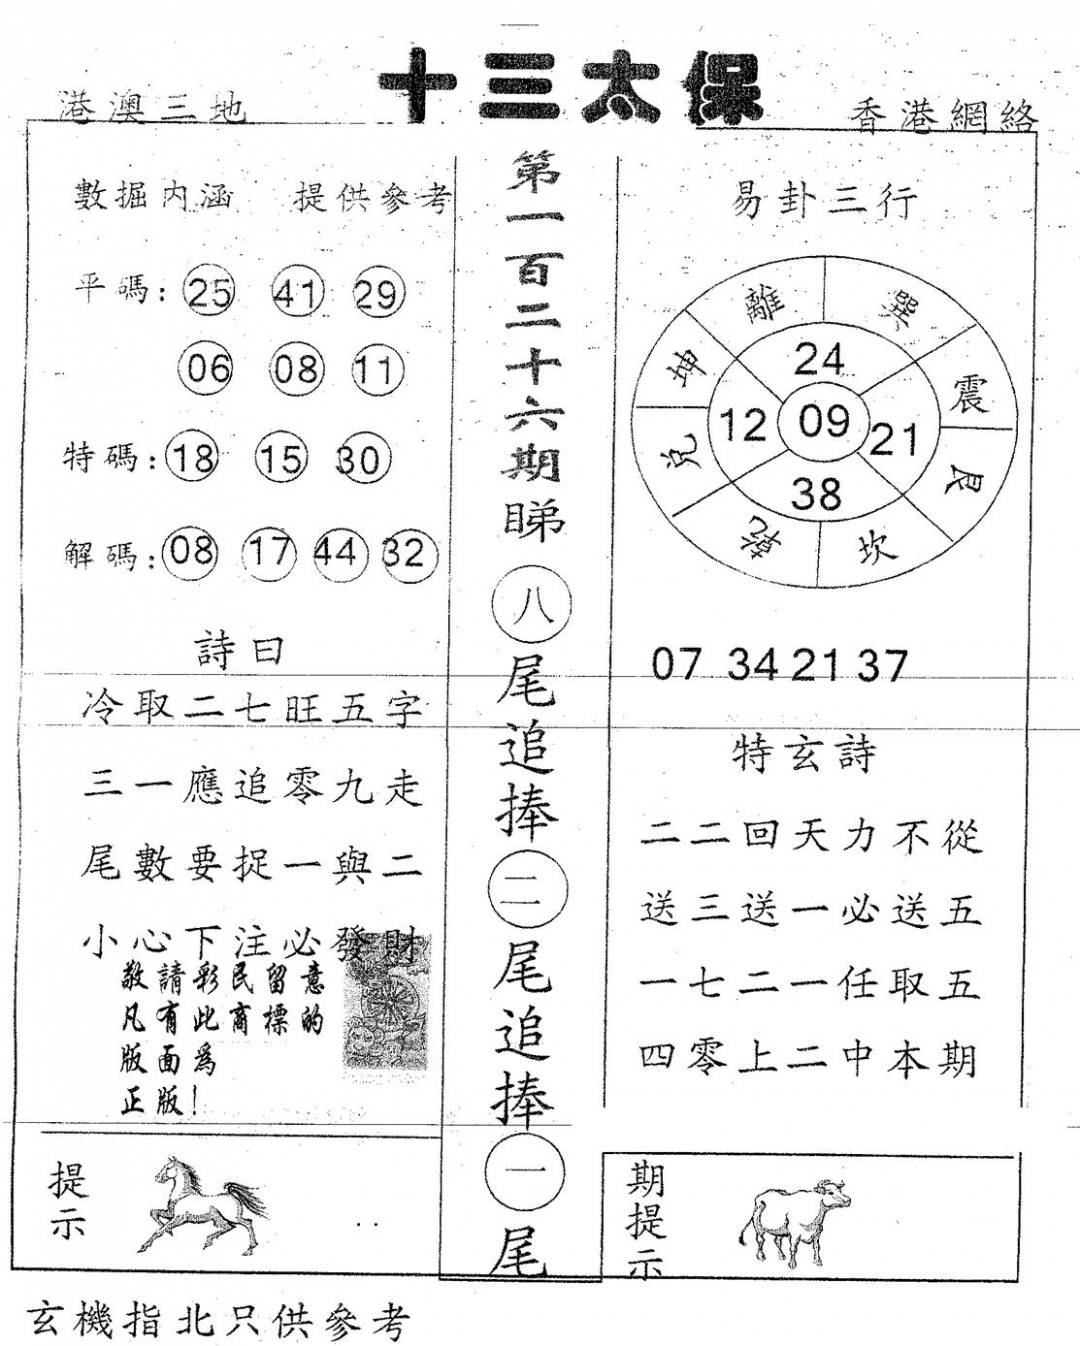 十三太保
港澳三地
香港網絡
數掘内涵 提供參考
平碼: 25 41 29
06 08 11
特碼: 18 15 30
解碼: 08 17 44 32
詩曰
冷取二七旺五字
三一應追零九走
尾數要捉一與二
小心下注必發財
敬請彩民留意
凡有此商標的
版面爲
正版!
提示
第一百二十六期睇八尾追捧二尾追捧一尾
易卦三行
離 巽
坤 震
兌 艮
乾 坎
24
12 09 21
38
07 34 21 37
特玄詩
二二回天力不從
送三送一必送五
一七二一任取五
四零上二中本期
期提示
玄機指北只供參考